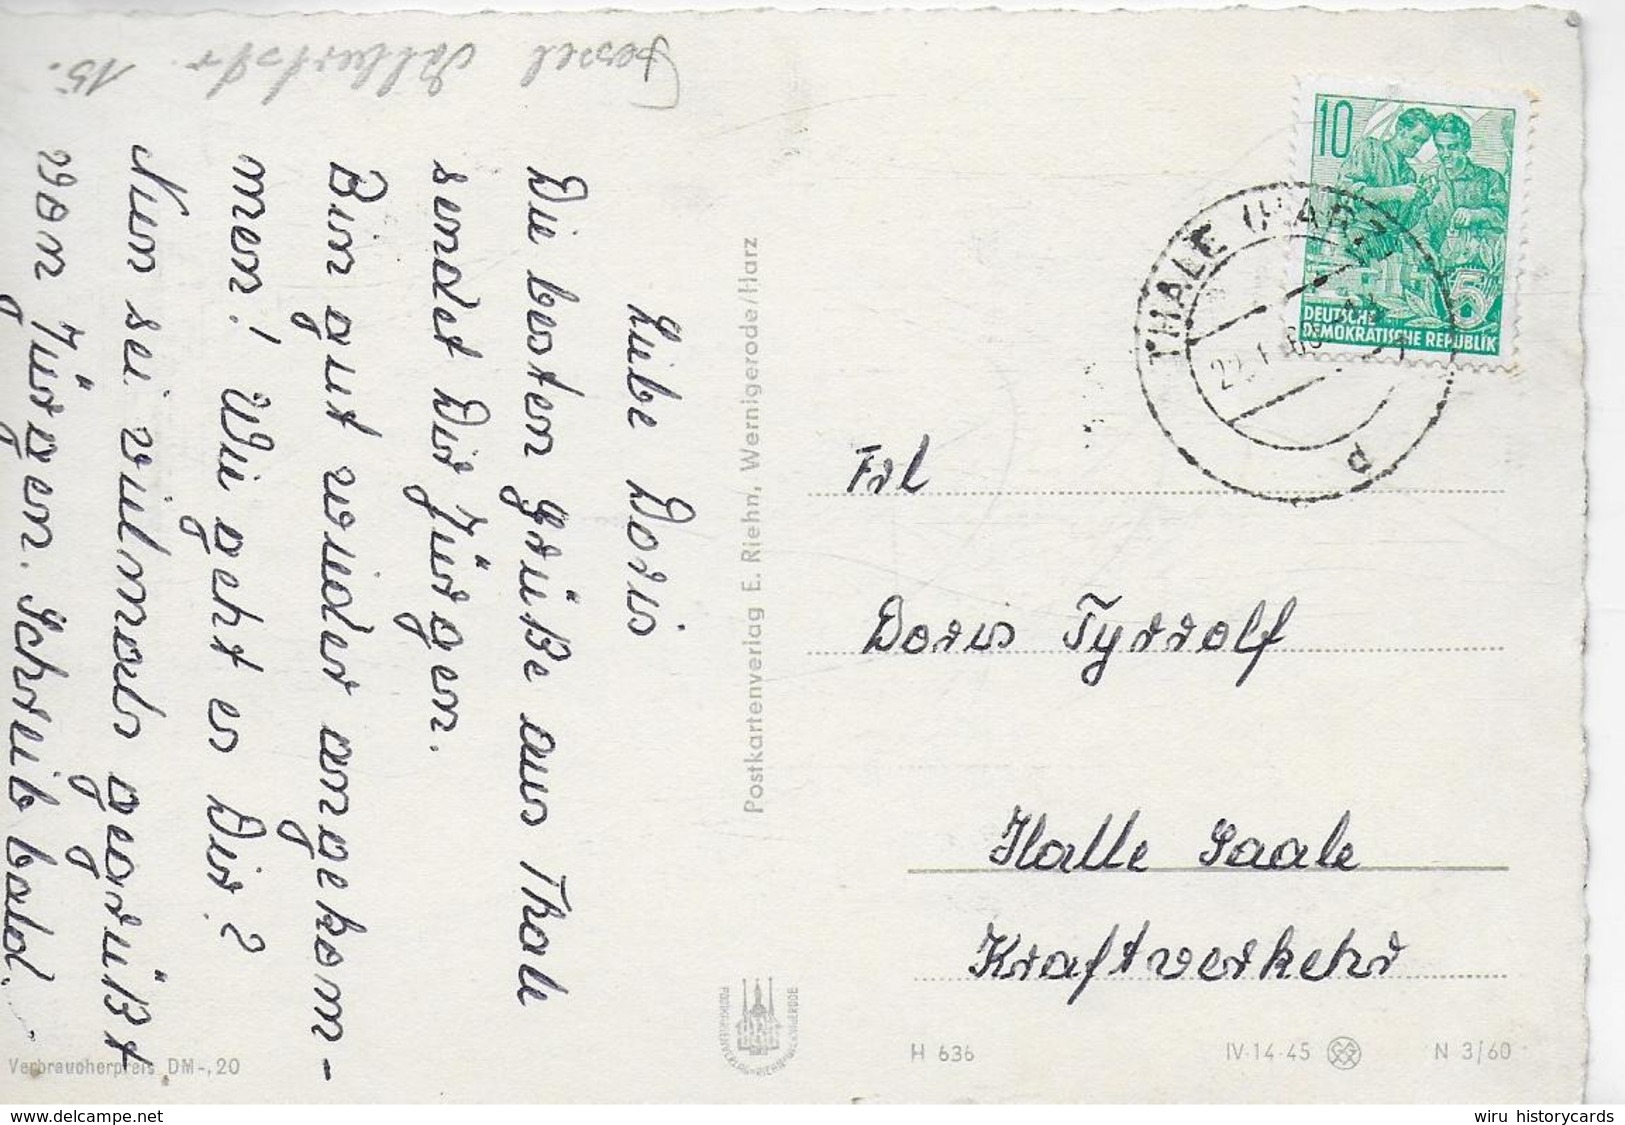 Liebe Doris
Die besten Grüße aus Thale
sendet Dir Jürgen.
Bin gut wieder angekom-
men! Wie geht es Dir?
Nun sei vielmals gegrüßt
von Jürgen. Schreib bald.
15.
Postkartenverlag E. Riehn, Wernigerode/Harz
10
5
DEUTSCHE
DEMOKRATISCHE REPUBLIK
THALE (HARZ)
Frl
Doris Tyrrolf
Halle Saale
Kraftverkehr
Verbraucherpreis DM -,20
POSTKARTENVERLAG • RIEHN • WERNIGERODE
H 636
IV-14-45
N 3/60
wiru historycards